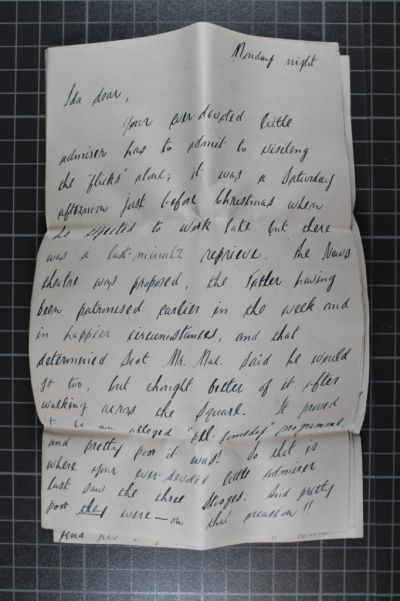 Monday night
Ida dear,
Your ever-devoted little
admirer has to admit to visiting
the 'flicks' alone; it was a Saturday
afternoon just before Christmas when
he expected to work late but there
was a last-minute reprieve. The News
theatre was proposed, the Tatler having
been patronised earlier in the week and
in happier circumstances, and that
determined Scot Mr. Mac. said he would
go too, but thought better of it after
walking across the Square. It proved
to be an alleged "all-comedy" programme,
and pretty poor it was! So that is
where your ever-devoted little admirer
last saw the three Stooges. And pretty
poor they were — on that occasion!!